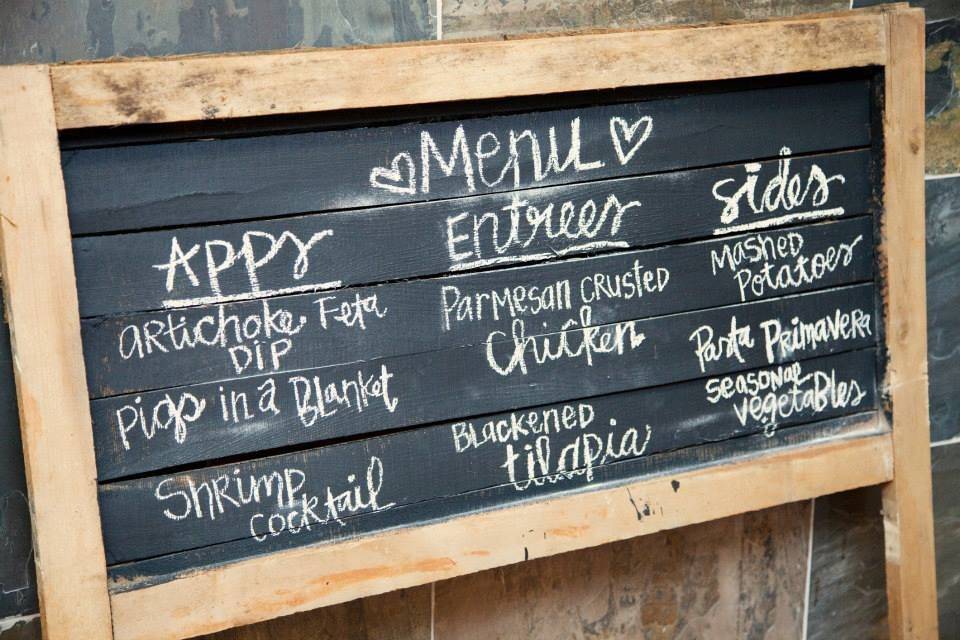 Menu
Apps
Artichoke Feta
Dip
Pigs in a Blanket
Shrimp
Cocktail
Entrees
Parmesan Crusted
Chicken
Blackened
tilapia
Sides
Mashed
Potatoes
Pasta Primavera
Seasonal
vegetables